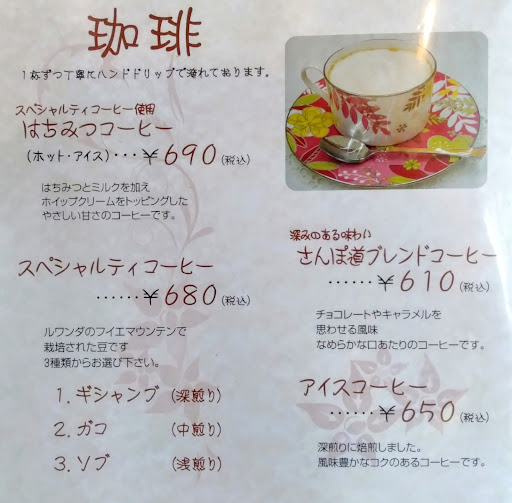 珈琲
1杯ずつ丁寧にハンドドリップで淹れております。
スペシャルティコーヒー使用
はちみつコーヒー
(ホット・アイス)･･･￥690(税込)
はちみつとミルクを加え
ホイップクリームをトッピングした
やさしい甘さのコーヒーです。
スペシャルティコーヒー
‥‥‥￥680(税込)
ルワンダのフイエマウンテンで
栽培された豆です
3種類からお選び下さい。
1.ギシャンブ(深煎り)
2.ガコ(中煎り)
3.ソブ(浅煎り)
深みのある味わい
さんぽ道ブレンドコーヒー
‥‥‥￥610(税込)
チョコレートやキャラメルを
思わせる風味
なめらかな口あたりのコーヒーです。
アイスコーヒー
‥‥‥￥650(税込)
深煎りに焙煎しました。
風味豊かなコクのあるコーヒーです。